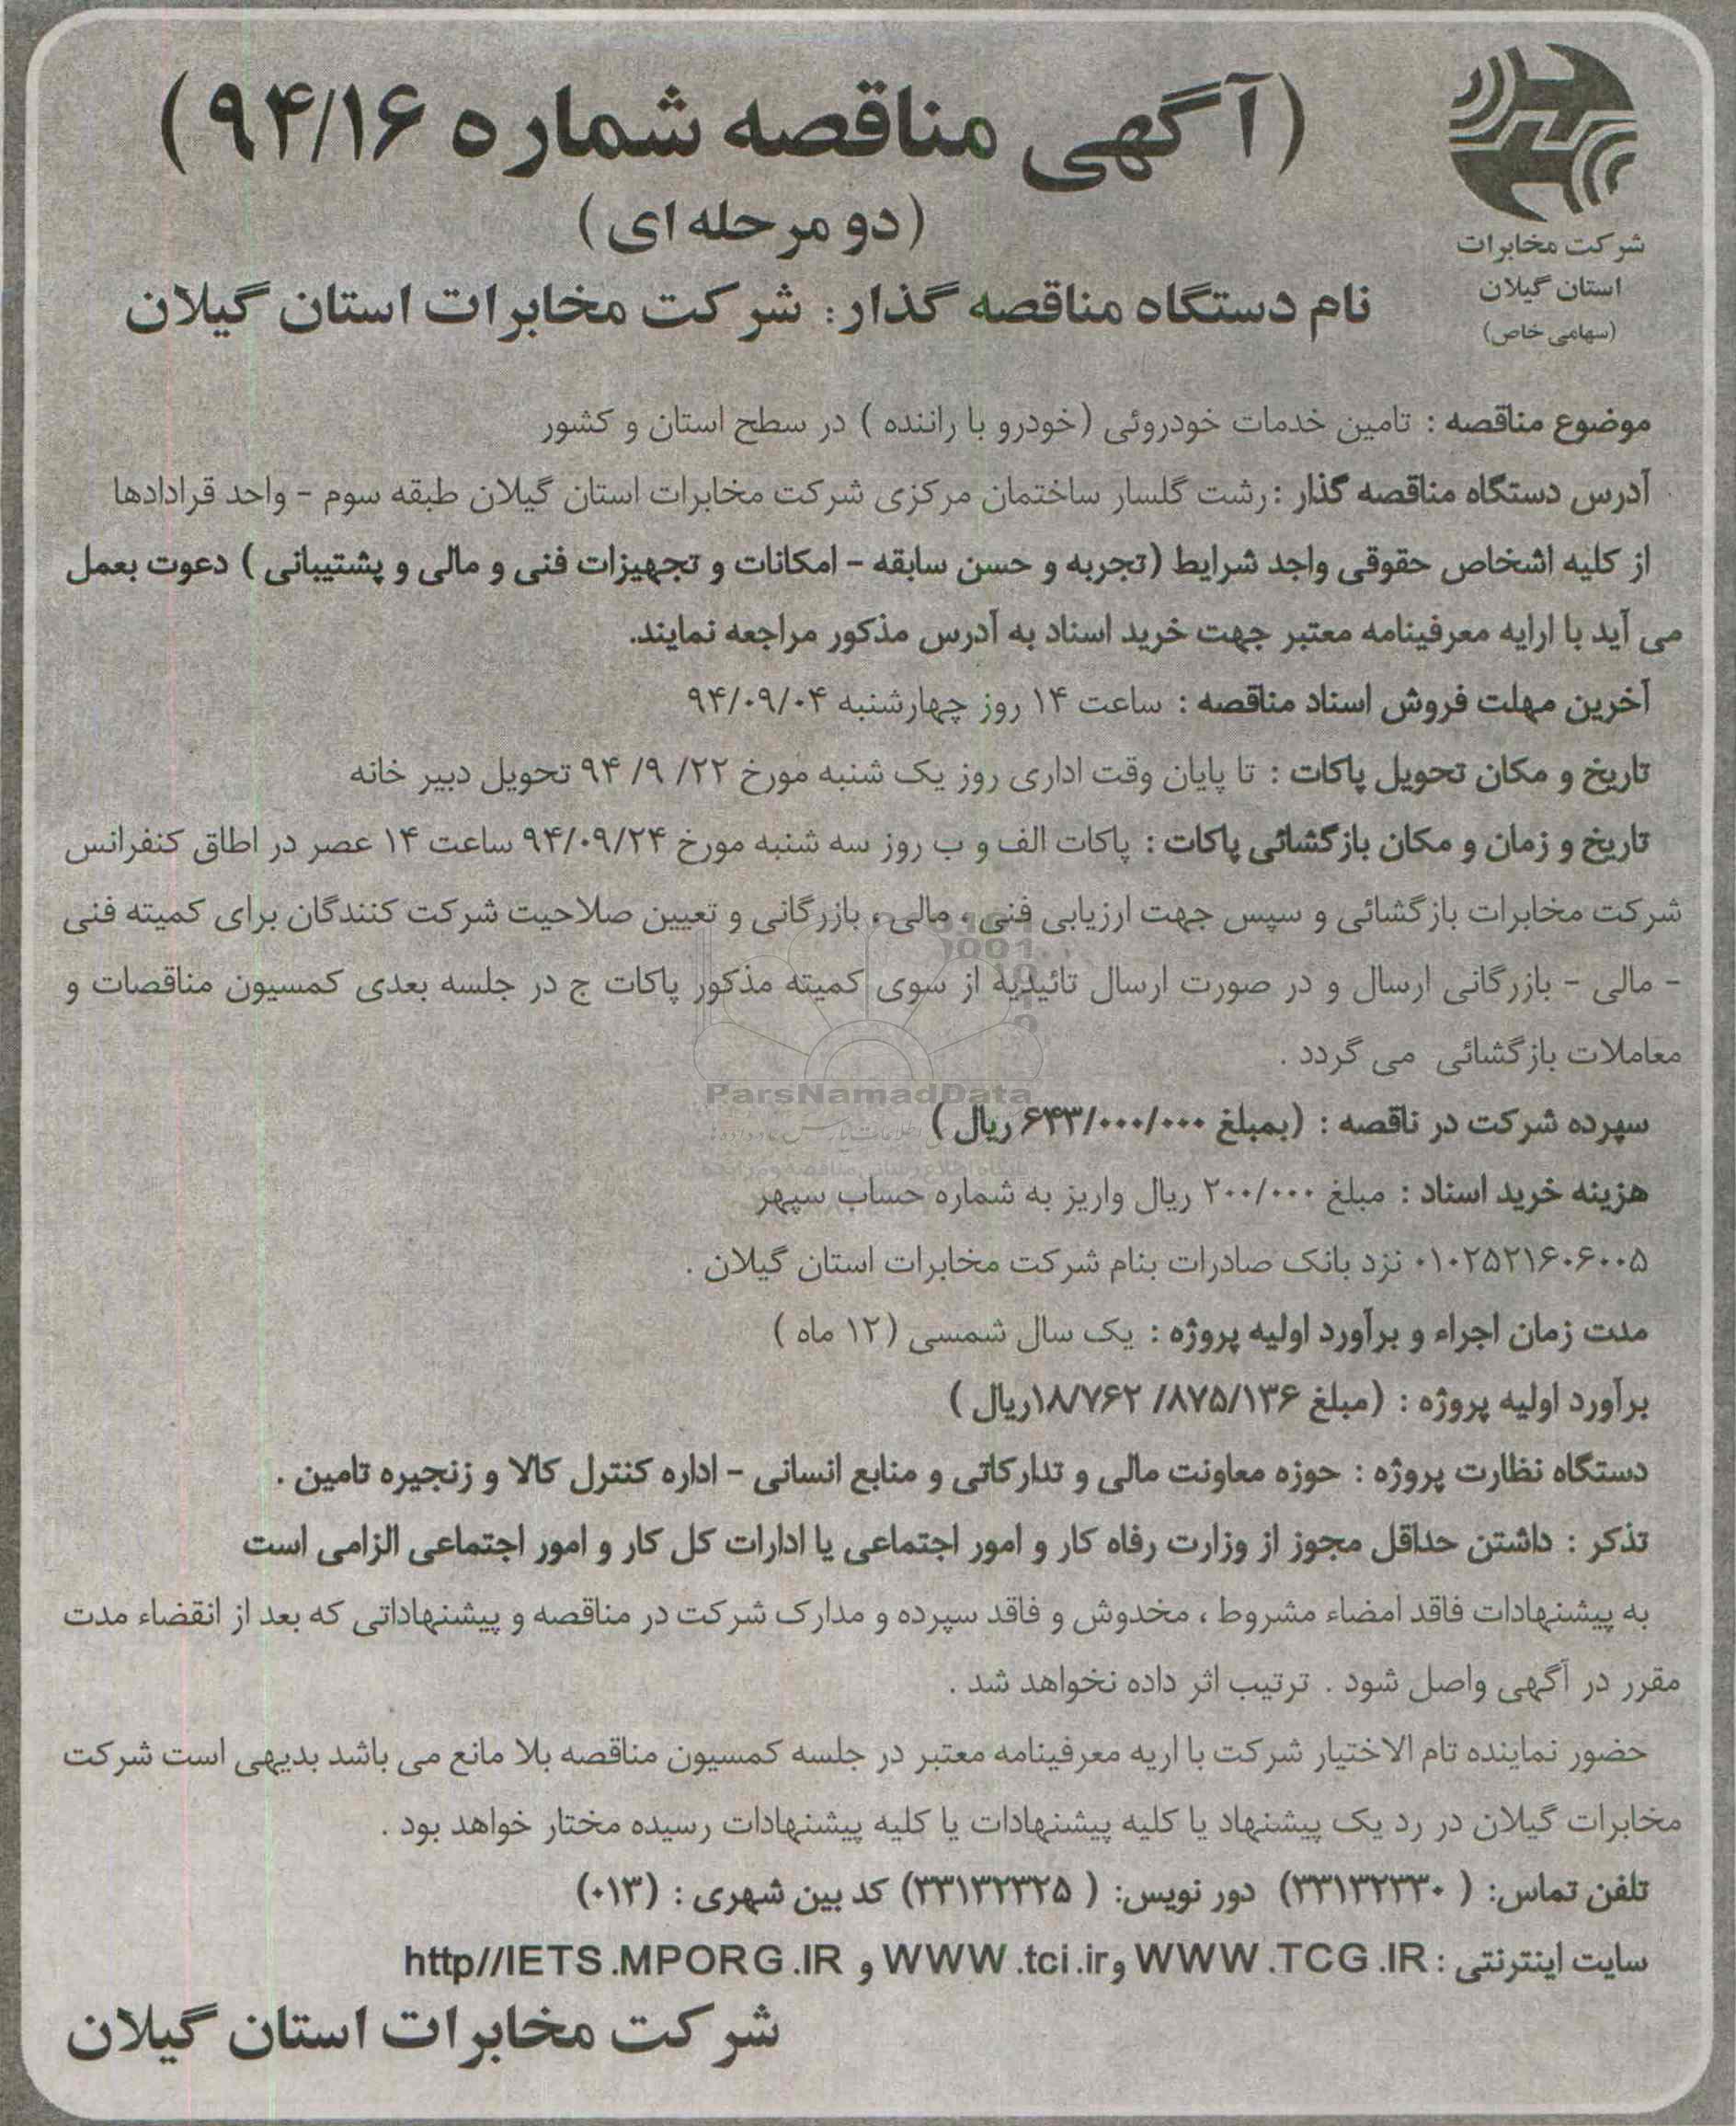 شرکت مخابرات
استان گیلان
(سهامی خاص)
(آگهی مناقصه شماره ۹۴/۱۶)
(دو مرحله ای)
نام دستگاه مناقصه گذار: شرکت مخابرات استان گیلان
موضوع مناقصه : تامین خدمات خودروئی (خودرو با راننده ) در سطح استان و کشور
آدرس دستگاه مناقصه گذار : رشت گلسار ساختمان مرکزی شرکت مخابرات استان گیلان طبقه سوم - واحد قرادادها
از کلیه اشخاص حقوقی واجد شرایط (تجربه و حسن سابقه - امکانات و تجهیزات فنی و مالی و پشتیبانی ) دعوت بعمل
می آید با ارایه معرفینامه معتبر جهت خرید اسناد به آدرس مذکور مراجعه نمایند.
آخرین مهلت فروش اسناد مناقصه : ساعت ۱۴ روز چهارشنبه ۹۴/۰۹/۰۴
تاریخ و مکان تحویل پاکات : تا پایان وقت اداری روز یک شنبه مورخ ۲۲/ ۹/ ۹۴ تحویل دبیر خانه
تاریخ و زمان و مکان بازگشائی پاکات : پاکات الف و ب روز سه شنبه مورخ ۹۴/۰۹/۲۴ ساعت ۱۴ عصر در اطاق کنفرانس
شرکت مخابرات بازگشائی و سپس جهت ارزیابی فنی ، مالی ، بازرگانی و تعیین صلاحیت شرکت کنندگان برای کمیته فنی
- مالی - بازرگانی ارسال و در صورت ارسال تائیدیه از سوی کمیته مذکور پاکات ج در جلسه بعدی کمسیون مناقصات و
معاملات بازگشائی می گردد .
ParsNamadData
سپرده شرکت در ناقصه : (بمبلغ ۶۴۳/۰۰۰/۰۰۰ ریال )
پایگاه اطلاع رسانی مناقصه و مزایده
هزینه خرید اسناد : مبلغ ۲۰۰/۰۰۰ ریال واریز به شماره حساب سپهر
۰۱۰۲۵۲۱۶۰۶۰۰۵ نزد بانک صادرات بنام شرکت مخابرات استان گیلان .
مدت زمان اجراء و برآورد اولیه پروژه : یک سال شمسی (۱۲ ماه )
برآورد اولیه پروژه : (مبلغ ۸۷۵/۱۳۶/ ۱۸/۷۶۲ریال )
دستگاه نظارت پروژه : حوزه معاونت مالی و تدارکاتی و منابع انسانی - اداره کنترل کالا و زنجیره تامین .
تذکر : داشتن حداقل مجوز از وزارت رفاه کار و امور اجتماعی یا ادارات کل کار و امور اجتماعی الزامی است
به پیشنهادات فاقد امضاء مشروط ، مخدوش و فاقد سپرده و مدارک شرکت در مناقصه و پیشنهاداتی که بعد از انقضاء مدت
مقرر در آگهی واصل شود . ترتیب اثر داده نخواهد شد .
حضور نماینده تام الاختیار شرکت با اریه معرفینامه معتبر در جلسه کمسیون مناقصه بلا مانع می باشد بدیهی است شرکت
مخابرات گیلان در رد یک پیشنهاد یا کلیه پیشنهادات یا کلیه پیشنهادات رسیده مختار خواهد بود .
تلفن تماس: ( ۳۳۱۳۲۳۳۰) دور نویس: ( ۳۳۱۳۲۳۲۵) کد بین شهری : (۰۱۳)
سایت اینترنتی : WWW.TCG.IR و WWW.tci.ir و http//IETS.MPORG.IR
شرکت مخابرات استان گیلان